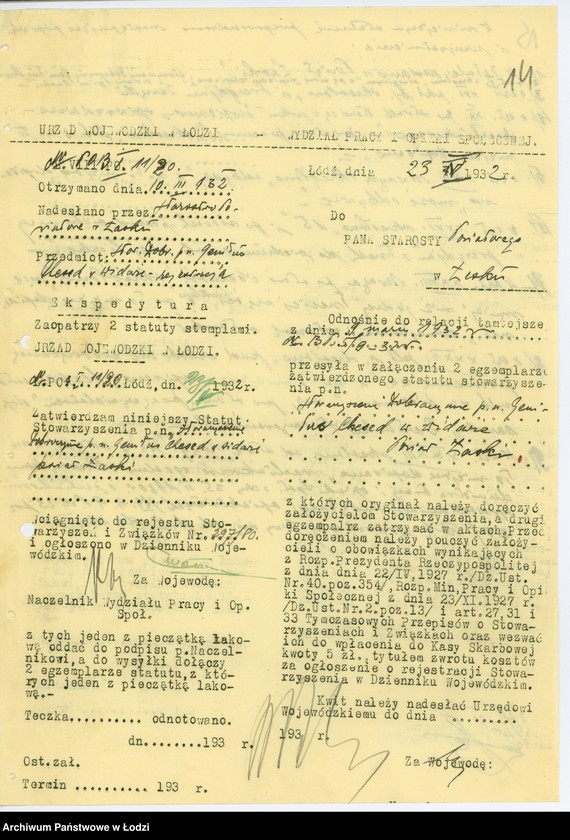 14
URZĄD WOJEWÓDZKI W ŁODZI - WYDZIAŁ PRACY I OPIEKI SPOŁECZNEJ.
11/20.
Otrzymano dnia 10. III 1932.
Nadesłano przez Starostwo Po-
wiatowe w Łasku
Przedmiot: Stow. Dobr. p.n. Gemilus
Chesed w Widawie - rejestracja
Ekspedytura
Zaopatrzy 2 statuty stemplami.
URZĄD WOJEWÓDZKI W ŁODZI.
11/20. Łódź, dn. 1932r.
Zatwierdzam niniejszy Statut
Stowarzyszenia p.n. Stowarzyszenie
Dobroczynne p.n. Gemilus Chesed w Widawie
powiat Łaski
Wciągnięto do rejestru Sto-
warzyszeń i Związków Nr. 297/PO.
i ogłoszono w Dzienniku Woje-
wódzkim.
Za Wojewodę:
Naczelnik Wydziału Pracy i Op.
Społ.
z tych jeden z pieczątką lako-
wą oddać do podpisu p.Naczel-
nikowi, a do wysyłki dołączy
2 egzemplarze statutu,z któ-
rych jeden z pieczątką lako-
wą.-
Teczka.......... odnotowano.
dn........193 r.
Ost.zał.
Termin .......... 193 r.
Łódź,dnia 23 IV 1932r.
Do
PANA STAROSTY Powiatowego
w Łasku
Odnośnie do relacji tamtejsze
z dnia 9 marca 1932 r.
przesyła w załączeniu 2 egzemplarze
zatwierdzonego statutu stowarzysze-
nia p.n.
Stowarzyszenie Dobroczynne p.n. Gemi-
lus Chesed w Widawie
Powiat Łaski
z których oryginał należy doręczyć
założycielom Stowarzyszenia,a drugi
egzemplarz zatrzymać w aktach.Przed
doręczeniem należy pouczyć założy-
cieli o obowiązkach wynikających
z Rozp.Prezydenta Rzeczypospolitej
z dnia dnia 22/IV,1927 r./Dz.Ust.
Nr.40.poz.354/,Rozp.Min,Pracy i Opi
ki Społecznej z dnia 23/XI.1927 r.
/Dz.Ust.Nr.2.poz.13/ i art.27,31 i
33 Tymczasowych Przepisów o Stowa-
rzyszeniach i Związkach oraz wezwać
ich do wpłacenia do Kasy Skarbowej
kwoty 5 zł. tytułem zwrotu kosztów
za ogłoszenie o rejestracji Stowa-
rzyszenia w Dzienniku Wojewódzkim.
Kwit należy nadesłać Urzędowi
Wojewódzkiemu do dnia .........
193 r.
Za Wojewodę:
Archiwum Państwowe w Łodzi